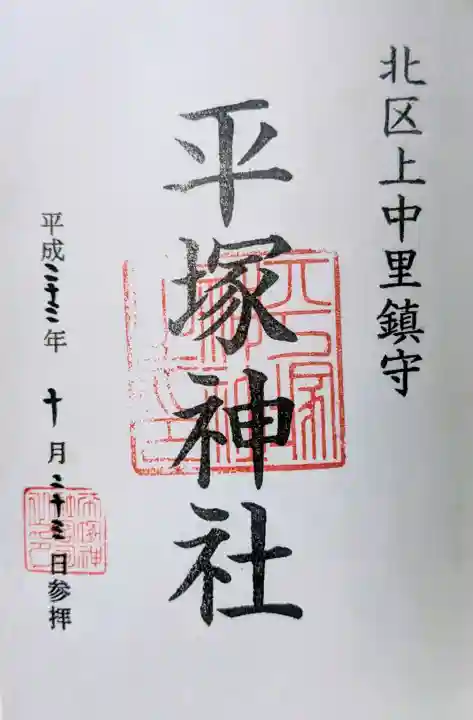 北区上中里鎮守
平塚神社
平成二十三年十月二十三日参拝